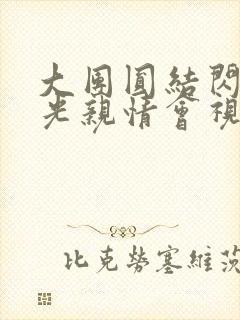 大團圓結閃
光親情會視
比克勞塞維茨